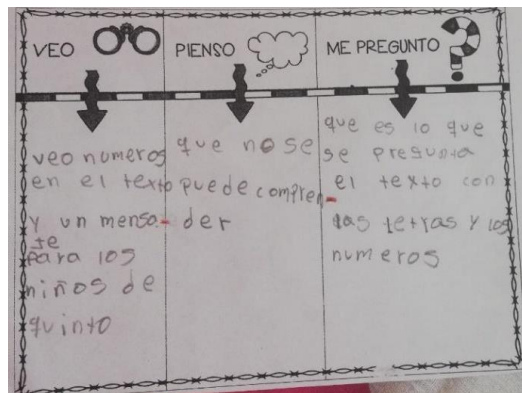 VEO
PIENSO
ME PREGUNTO
veo numeros
en el texto
y un mensa-
je
para los
niños de
quinto
que no se
puede compren-
der
que es lo que
se pregunta
el texto con
las letras y los
numeros